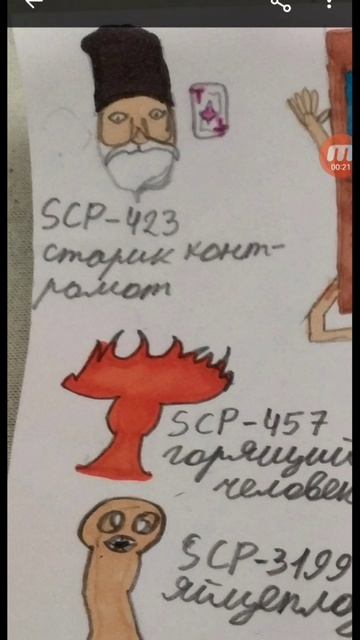 T
T
00:21
SCP-423
старик конт-
рамот
SCP-457
горящий
человек
SCP-3199